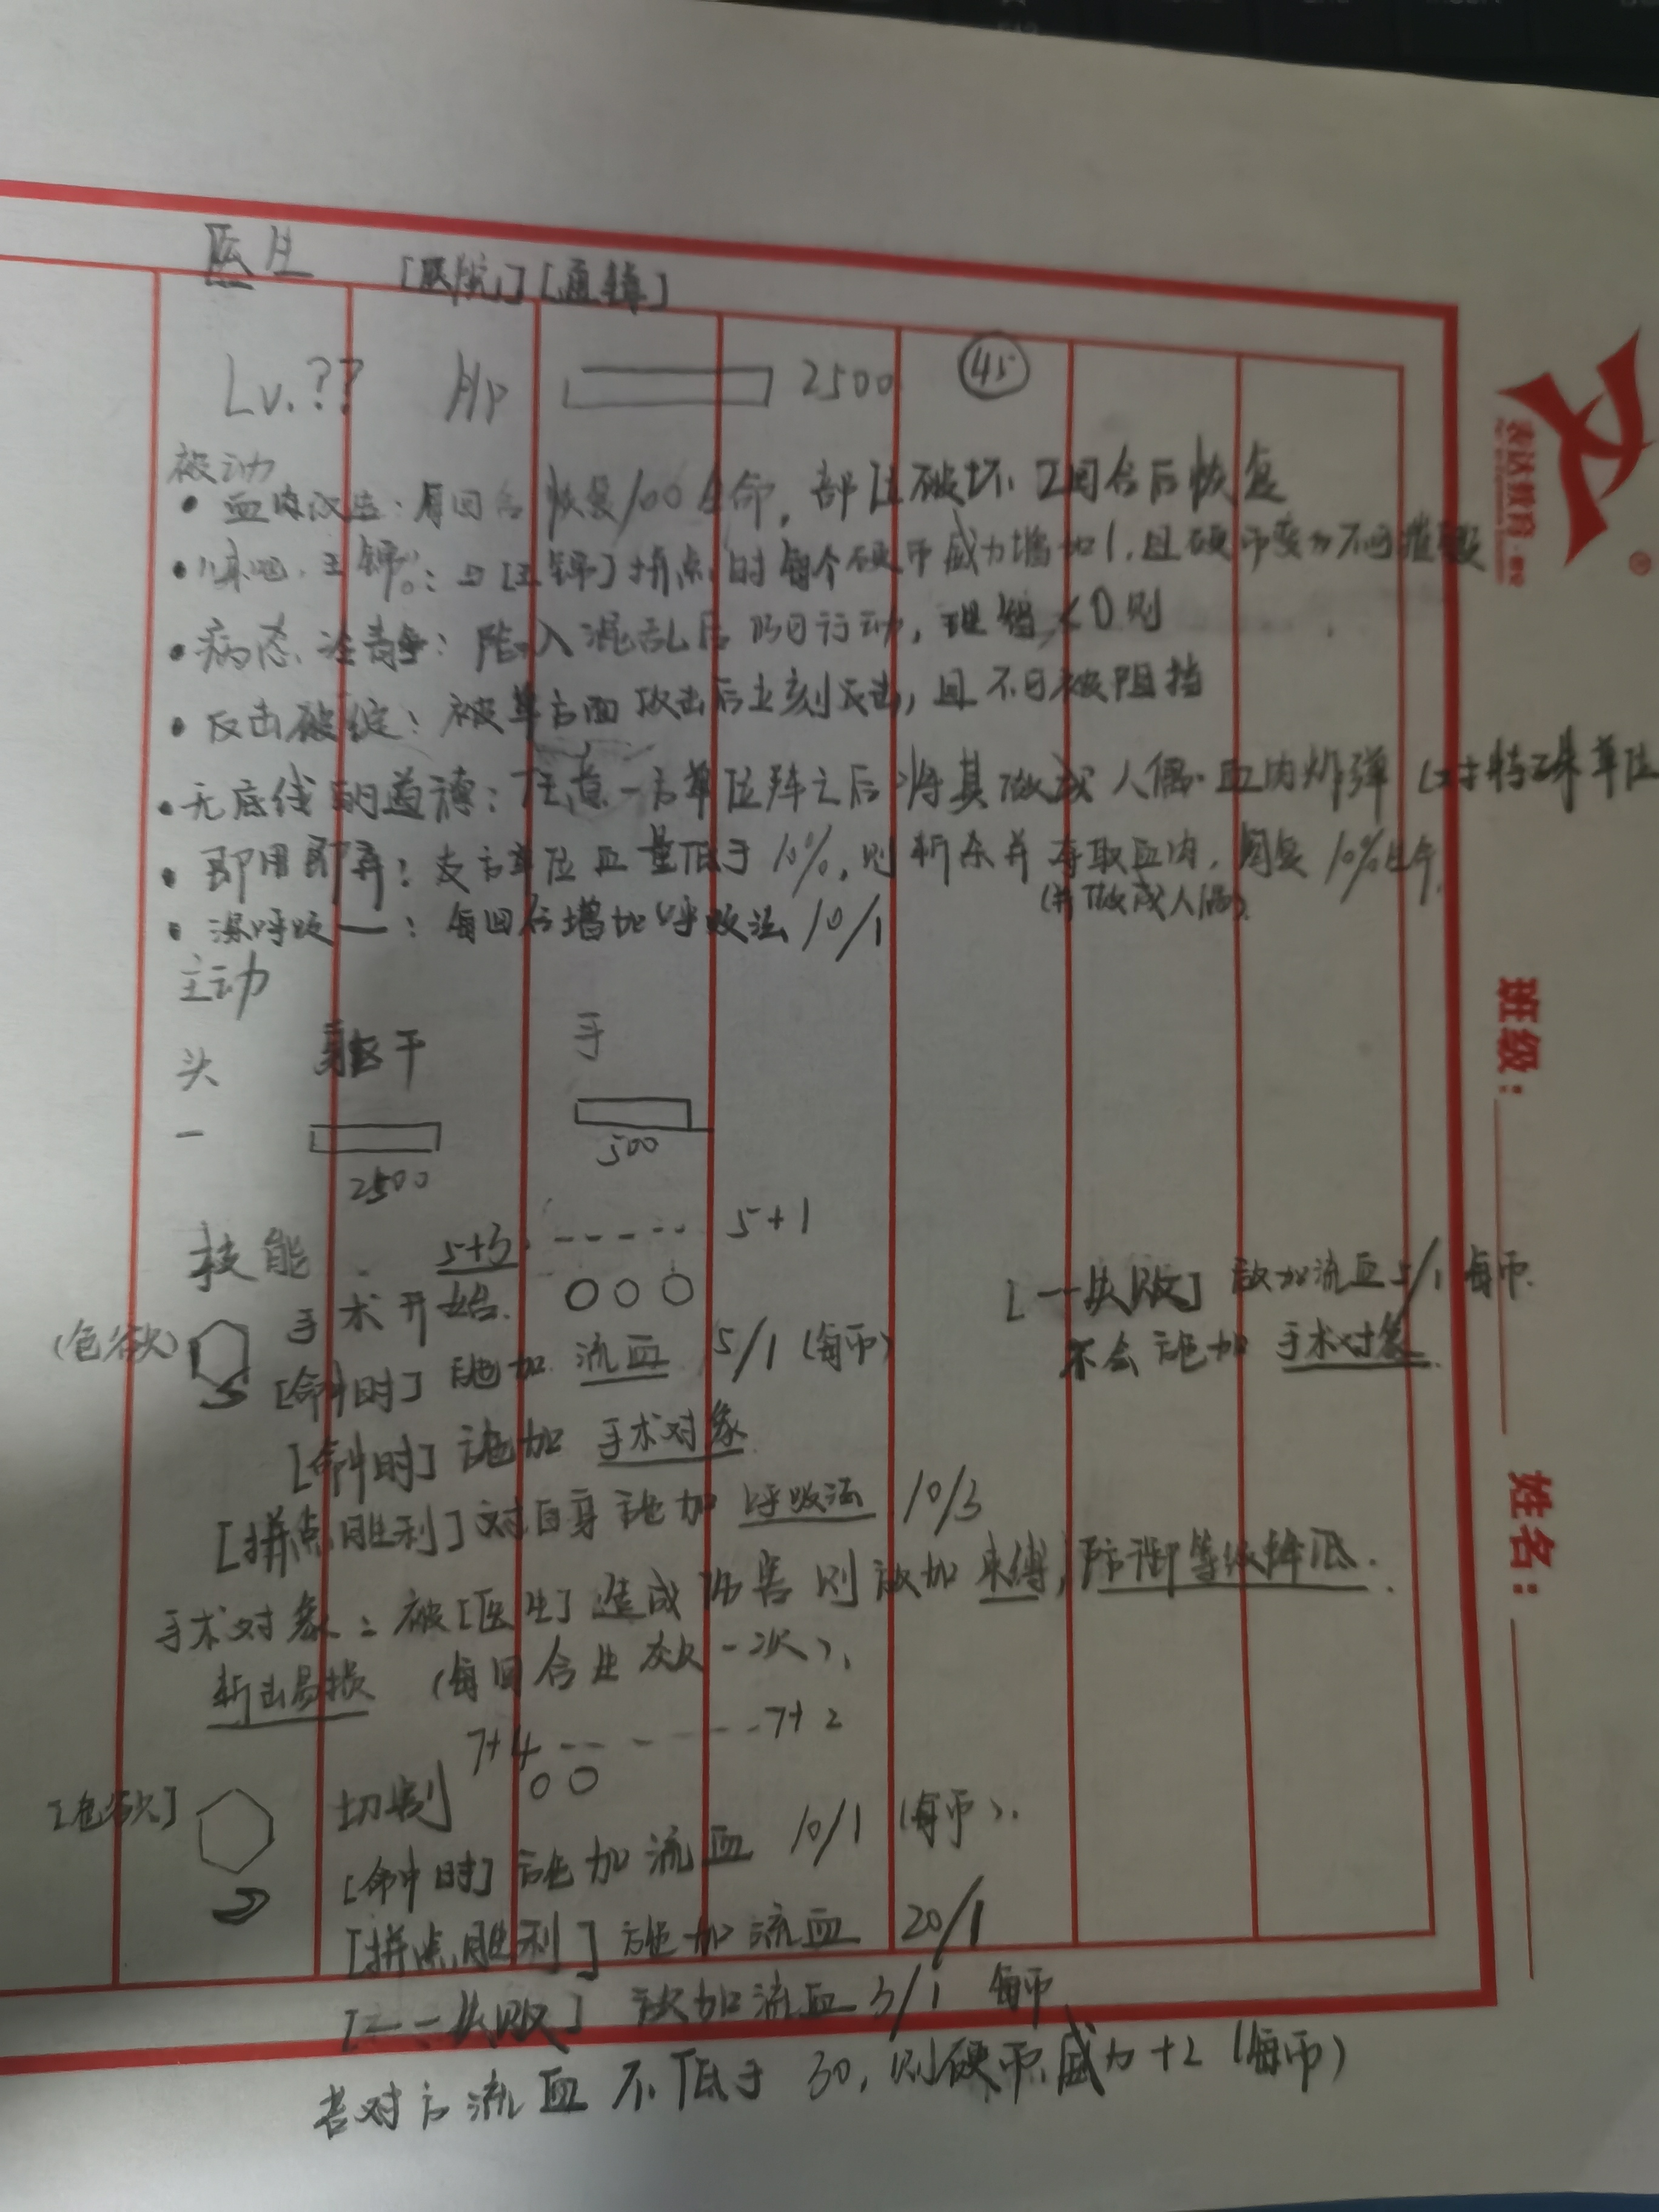 医生 [医院][通缉]
Lv.?? Hp 2500 45
被动
• 血肉改造：每回合恢复100生命，部位破坏 2回合后恢复
• 来吧，王 ：与[王 ]拼点时每个硬币威力增加1，且硬币变为不可摧毁
• 病态 ：陷入混乱后 行动，理智 0则
• 反击破绽：被单方面攻击后立刻反击，且不可被阻挡
• 无底线的道德：任意一方单位阵亡后 将其做成人偶 血肉炸弹 特殊单位
• 即用即弃：友方单位血量低于10%，则斩杀并 取血肉，回复10%生命
(并做成人偶)
• 深呼吸一：每回合增加呼吸法10/1
主动
头 躯干 手
一 2500 500
技能 5+3 5+1
(色欲) 手术开始
[命中时] 施加 流血 5/1 (每币)
[一失败] 施加流血 /1 每币
不会施加 手术对象
[命中时] 施加 手术对象
[拼点胜利] 对自身施加 呼吸法 10/3
手术对象：被[医生]造成伤害则施加 束缚，防御等级降低.
斩击易损 (每回合生效一次)
7+4 7+2
[色欲] 切割
[命中时] 施加 流血 10/1 (每币).
[拼点胜利] 施加 流血 20/1
[ 失败] 施加流血 3/1 每币
若对方流血 不低于 30，则硬币威力+2 (每币)
班级：
姓名：